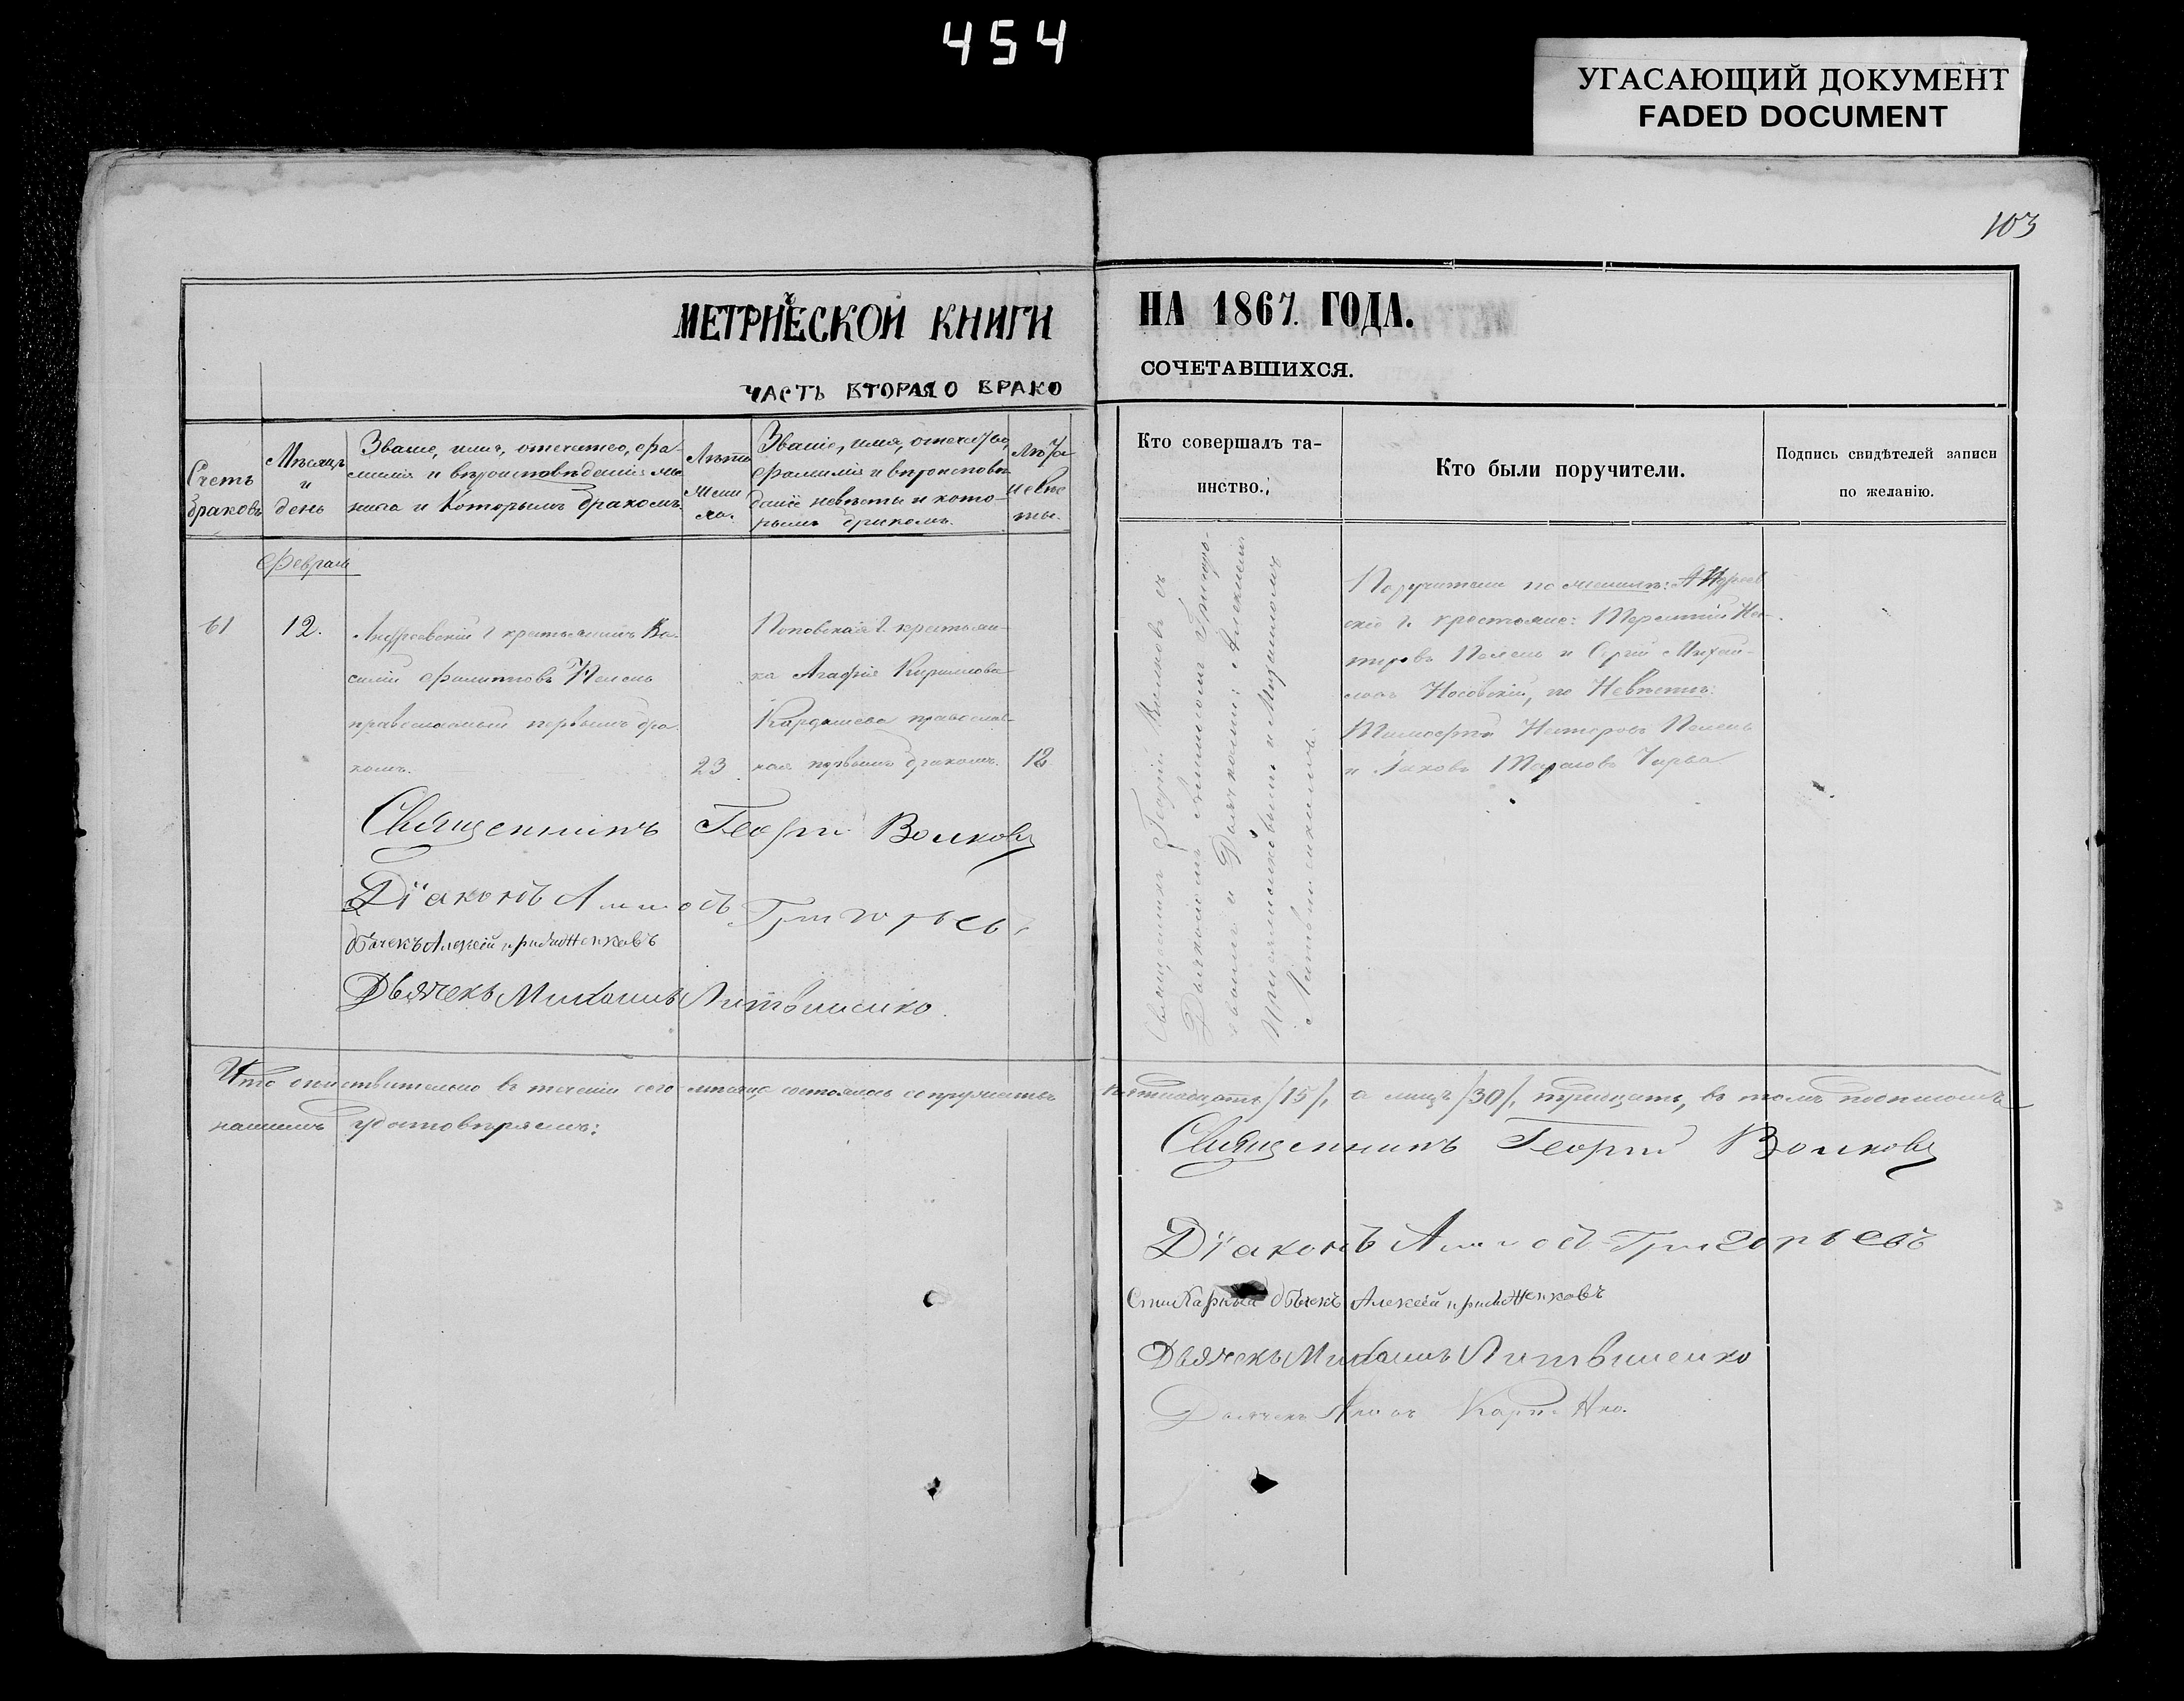 454
УГАСАЮЩИЙ ДОКУМЕНТ
FADED DOCUMENT
103
МЕТРИЧЕСКОЙ КНИГИ
НА 1867. ГОДА.
ЧАСТЬ ВТОРАЯ О БРАКО
СОЧЕТАВШИХСЯ.
Счетъ браковъ
Мѣсяцъ и день
Званіе, имя, отечество, фа-
милія и вѣроисповѣданіе же-
ниха и которымъ бракомъ
Лѣта жени
ха.
Званіе, имя, отечество,
фамилія и вѣроисповѣ
даніе невѣсты и кото-
рымъ бракомъ.
Лѣта
невѣс
ты.
Кто совершалъ та-
инство.
Кто были поручители.
Подпись свидѣтелей записи
по желанію.
Февраль
61
12.
Андреевскій г. крестьянинъ Ва-
силій Филиповъ
православный первымъ бра
комъ.
23
Поповская г. крестьян-
ка Агафія Кирилова
Кардашева православ-
ная первымъ бракомъ.
18
Священникъ Георгій Волковъ съ
Діакономъ Григорь-
евымъ и Дьячками: Алексіемъ
и Михаиломъ
Литвиненкомъ.
Поручители по женихѣ: Андреев
скіе г. крестьяне: Терентій Нес-
теровъ и Сергій Михай-
ловъ Носовскій, по Невѣстѣ:
Тимофей Нестеровъ
и Яковъ Тарасовъ
Священникъ Георгій Волковъ
Діаконъ Григорьевъ
Дьячекъ Алексій
Дьячекъ Михаилъ Литвиненко.
Что дѣйствительно въ теченіи сего мѣсяца состоялось супружествъ
пятнадцать /15/, а лицъ /30/, тридцать, въ томъ подписомъ
нашимъ удостовѣряемъ:
Священникъ Георгій Волковъ
Діаконъ Григорьевъ
Дьячекъ Алексій
Дьячекъ Михаилъ Литвиненко
Дьячекъ